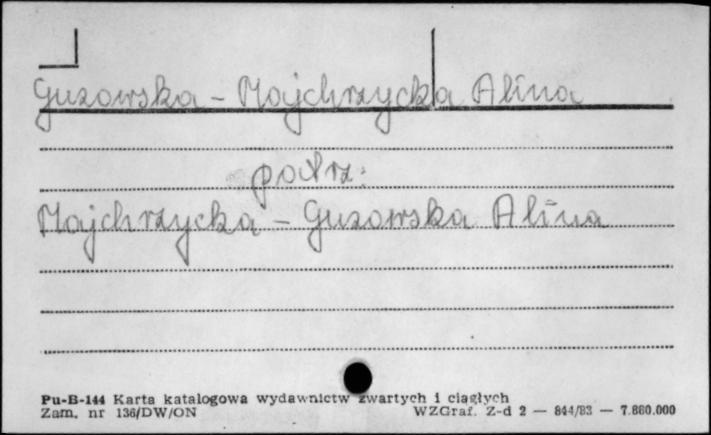 Guzowska - Majchrzycka Alina
patrz:
Majchrzycka - Guzowska Alina
Pu-B-144 Karta katalogowa wydawnictw zwartych i ciągłych
Zam. nr 136/DW/ON WZGraf. Z-d 2 — 844/83 — 7.880.000